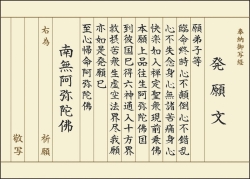 奉納御写経
発願文
願弟子等
臨命終時心不顛倒心不錯乱
心不失念身心無諸苦痛身心
快楽如入禅定聖衆現前乗佛
本願上品往生阿弥陀佛国
到彼国已得六神通入十方界
救摂苦衆生虚空法界尽我願
亦如是発願已
至心帰命阿弥陀佛
南無阿弥陀佛
右為 祈願
敬写